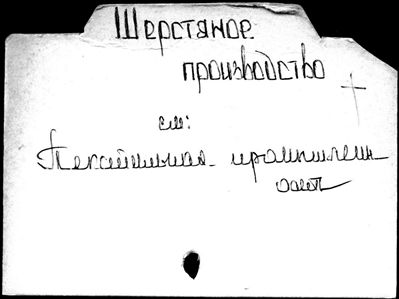 Шерстяное
производство
см:
Текстильная промышлен-
ность